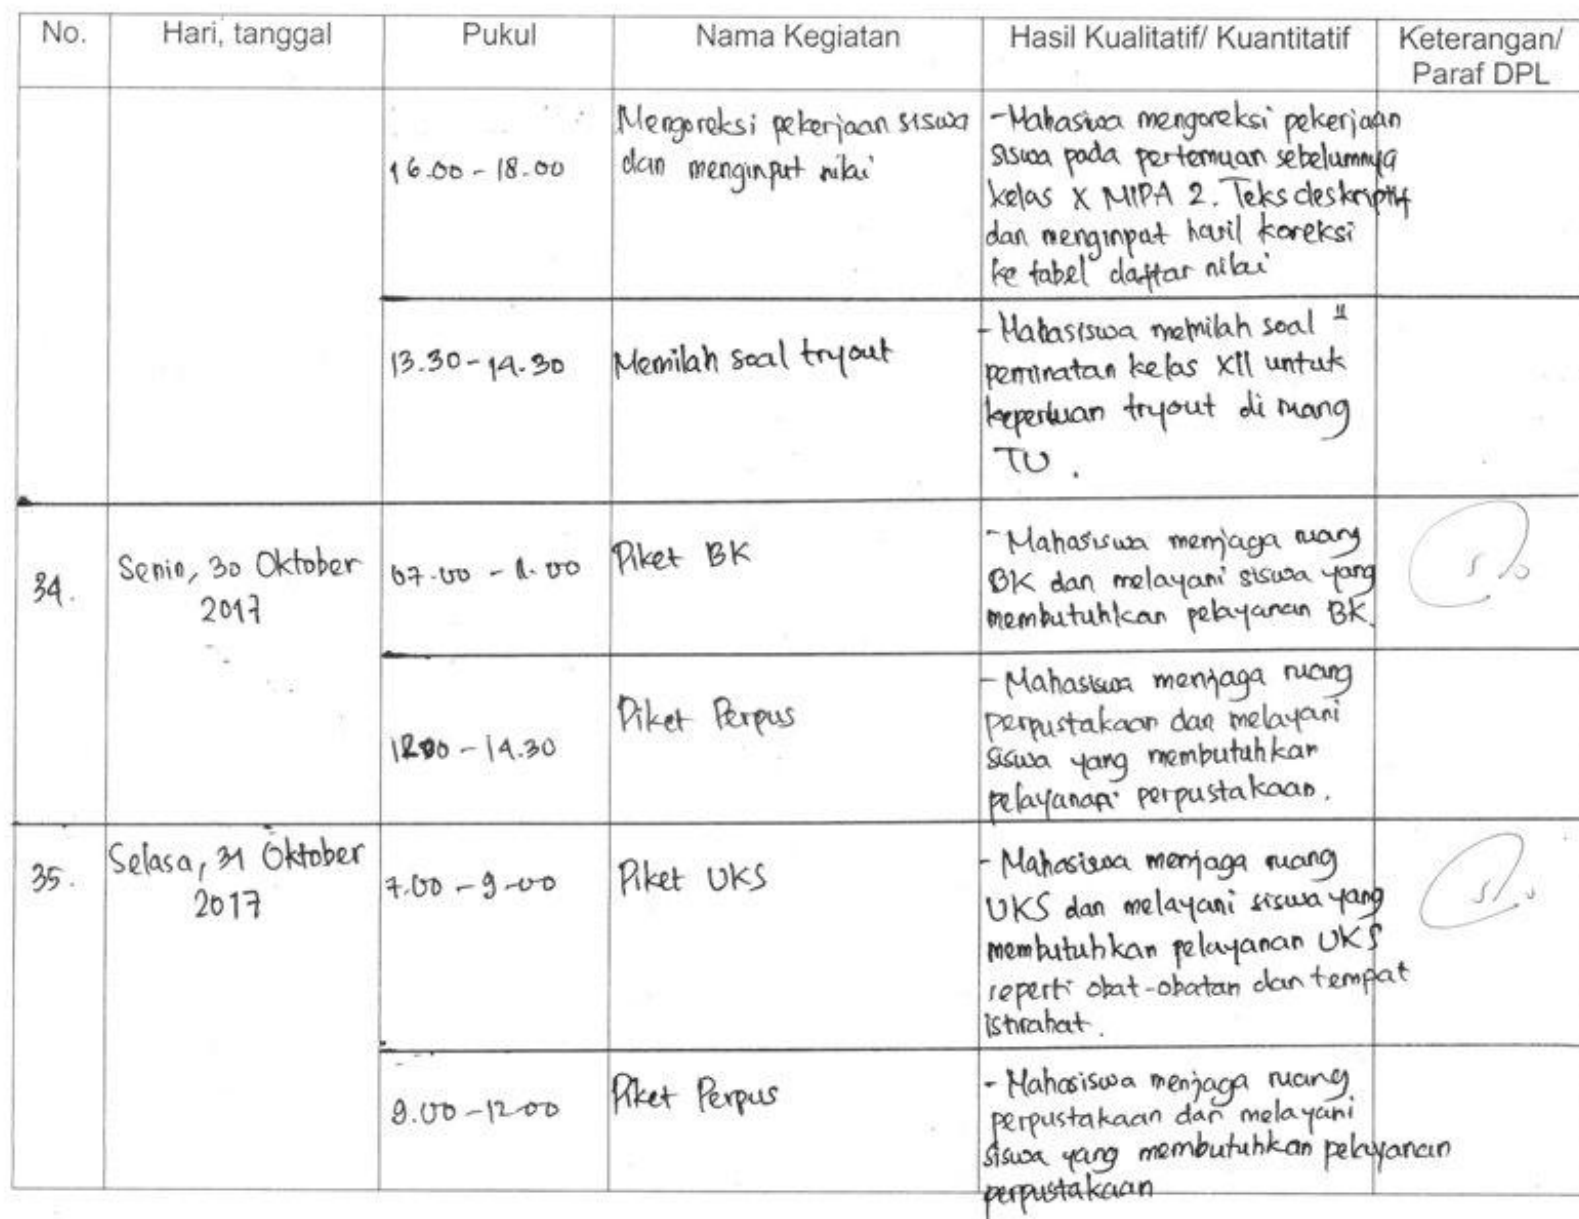 No. Hari, tanggal Pukul Nama Kegiatan Hasil Kualitatif/ Kuantitatif Keterangan/
Paraf DPL
16.00 - 18.00
Mengoreksi pekerjaan siswa
dan menginput nilai
- Mahasiswa mengoreksi pekerjaan
siswa pada pertemuan sebelumnya
kelas X MIPA 2. Teks deskriptif
dan menginput hasil koreksi
ke tabel daftar nilai
13.30 - 14.30
Memilah soal tryout
- Mahasiswa memilah soal "
peminatan kelas XII untuk
keperluan tryout di ruang
TU.
34.
Senin, 30 Oktober
2017
07.00 -
Piket BK
- Mahasiswa menjaga ruang
BK dan melayani siswa yang
membutuhkan pelayanan BK.
- 14.30
Piket Perpus
- Mahasiswa menjaga ruang
perpustakaan dan melayani
siswa yang membutuhkan
pelayanan perpustakaan.
35.
Selasa, 31 Oktober
2017
7.00 - 9.00
Piket UKS
- Mahasiswa menjaga ruang
UKS dan melayani siswa yang
membutuhkan pelayanan UKS
seperti obat-obatan dan tempat
istirahat.
9.00 - 12.00
Piket Perpus
- Mahasiswa menjaga ruang
perpustakaan dan melayani
siswa yang membutuhkan pelayanan
perpustakaan